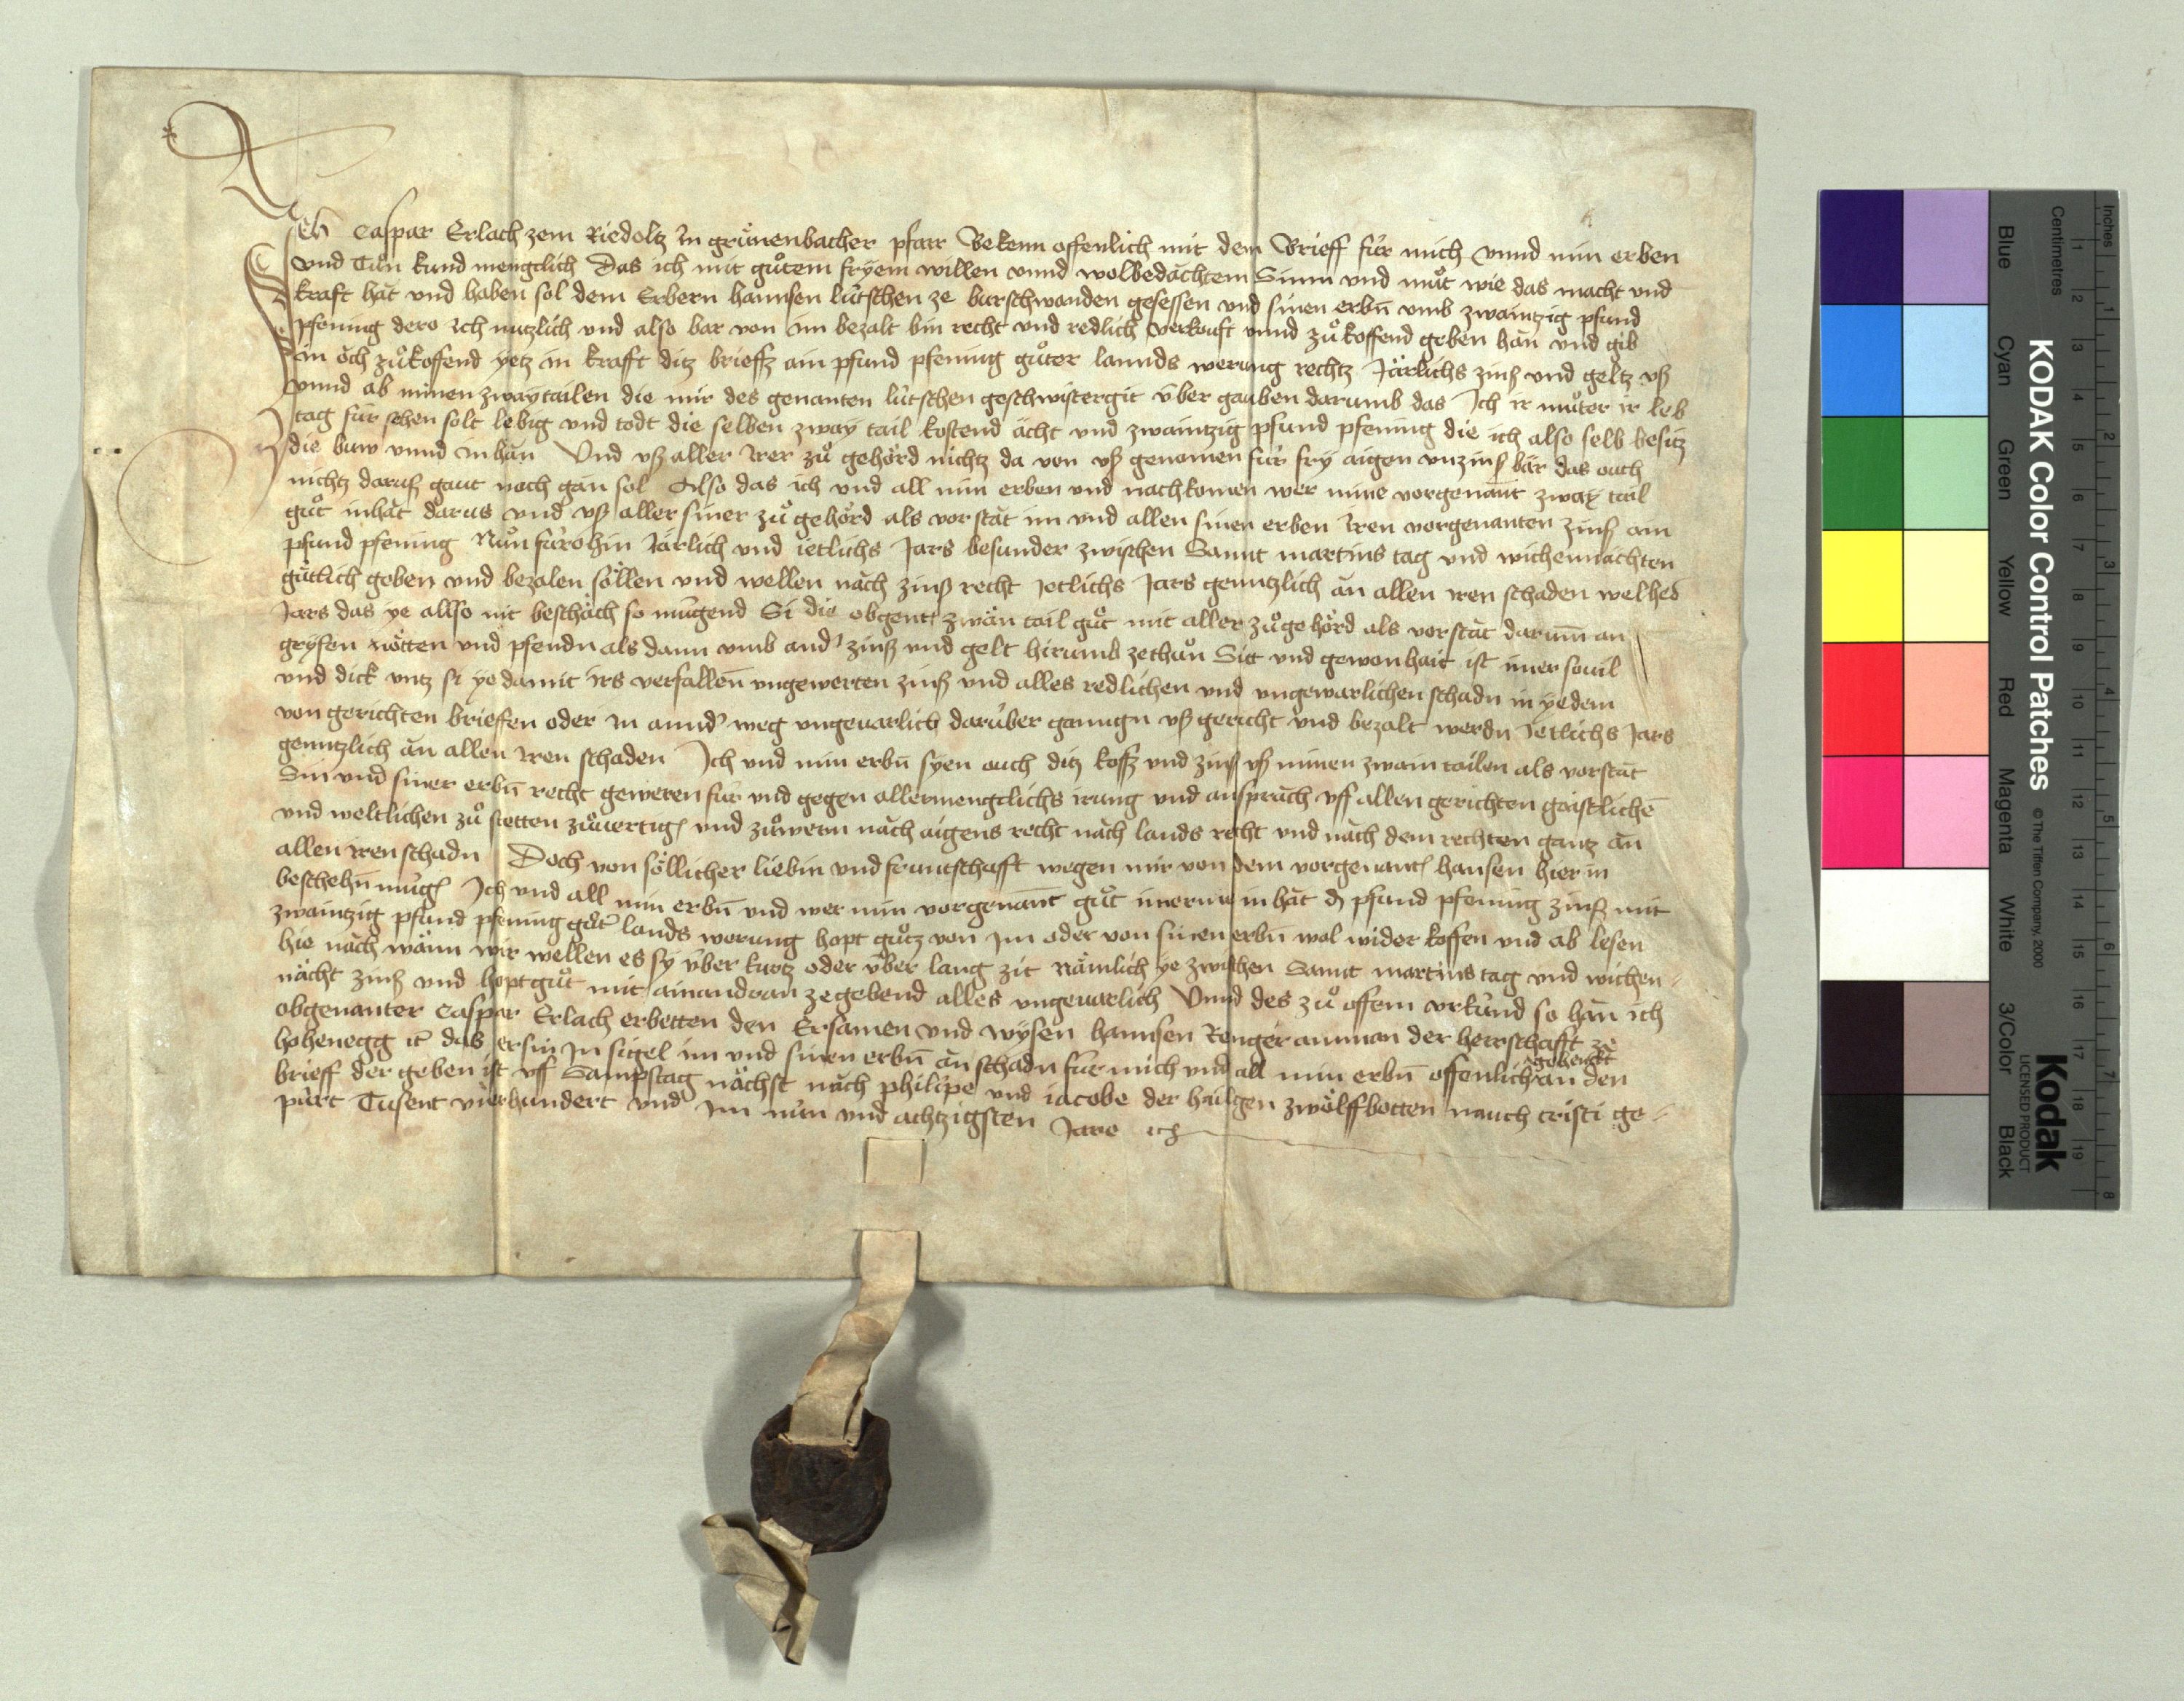 Ich Caspar Erlach zem Riedoltz In grůnenbacher pfarr Bekenn offenlich mit dem Brieff fúr mich vnnd min erben
vnd Tůn kund mengclich Das ich mit gůtem fryem willen vnnd wolbedăchtem Sinn vnd můt wie das macht vnd
kraft hăt vnd haben sol dem Erbern hannsen lútschen ze burschwanden gesessen vnd sinen erbn̄ vmb zwaintzig pfund
pfening dero Ich nutzlich vnd also bar von im bezalt bin recht vnd redlich verkouft vnnd zů koffend geben hăn vnd gib
in ŏch zůkoffend yetz in kraft ditz brieffz ain pfund pfening gůter lannds werung rechtz Järlichs zinß vnd geltz vß
vnnd ab minen zway tailen die mir des genanten lútschen geschwistergit v́ber gauben darumb das Ich ir můter ir leb
tag fúr sehen solt lebig vnd todt die selben zway tail kostend ächt vnd zwaintzig pfund pfening die ich also selb besitz
die buw vnnd Innhăn Vnd vß aller Irer zů gehörd nichtz da von vß genomen fúr fry aigen vnzinß bär das ouch
nichtz daruß gaut noch găn sol Also das ich vnd all min erben vnd nachkomen wer mine vorgenan̄t zway tail
gůt inhăt darus vnd vß aller siner zů gehörd als vorstăt im vnd allen sinen erben Iren vorgenanten zinß ain
pfund pfening Nůn fúrohin Järlich vnd ietlichs Jars besunder zwischen Sannt martins tag vnd wichennächten
gůtlich geben vnd bezalen söllen vnd wellen năch zinß recht Ietlichs Jars genntzlich ăn allen Iren schaden welhes
Jars das ye allso nit beschäch so mugend Si die obgent zwăn tail gůt mit aller zůgehörd als vorstăt darum̄ an
gryfen nötten vnd pfendn als dann vmb and zinß vnd gelt hirumb zethůn Sit vnd gewonhait ist imer souil
vnd dick vntz si ye damit irs verfallen̄ vngewerten zinß vnd alles redlichen vnd vngewarlichen schadn in yedem
von gerichten brieffen oder in annd weg vngeuarlich darúber gănngn vß gericht vnd bezalt werdn Ietlichs Jars
genntzlich ăn allen Iren schaden Ich vnd min erbn̄ syen ouch ditz koffz vnd zinß vß minen zwain tailen als vorstăt
Sin vnd siner erbn̄ recht geweren fúr vnd gegen allermengclichs irung vnd ansprăch vff allen gerichten gaistlichē
vnd weltlichen zů stetten zůuertigen vnd zůwern năch aigens recht năch lands recht vnd năch dem rechten gantz ăn
allen Iren schadn Doch von söllicher liebin vnd fruntschafft wegen mir von dem vorgenant hansen hier in
beschehn̄ múgen Ich vnd all min erbn̄ vnd wer min vorgenan̄t gůt imerme in hăt dz pfund pfening zinß mit
zwaintzig pfund pfening gůt lands werung hopt gůtz von im oder von sinen erbn̄ wol wider koffen vnd ab lesen
hie năch wänn wir wellen es sy v́ber kurtz oder v́ber lang zit Nämlich ye zwischen Sannt martins tag vnd wichen-
nächt zinß vnd hoptgůt mit ainandran ze gebend alles vngeuarlich Vnnd des zů offem vrkúnd so hăn ich
obgenanter Caspar Erlach erbetten den Ersamen vnd wysen hannsen Renger amman der herrschafft zů
hohenegg Ec das er sin Insigel im vnd sinen erbn̄ ăn schadn fúr mich vnd all min erbn̄ offenlich gehenckt an den
brieff der geben ist vff Sampstag nächst năch philipe vnd iacobe der hailgen zwölffbotten nauch cristi ge-
púrt Tusent vierhundert vnd im nún vnd achtzigsten Jare ~~
KODAK Color Control Patches © The Tiffen Company, 2000 Kodak LICENSED PRODUCT
Blue Cyan Green Yellow Red Magenta White 3/Color Black
Centimetres 1 2 3 4 5 6 7 8 9 10 11 12 13 14 15 16 17 18 19
Inches 1 2 3 4 5 6 7 8